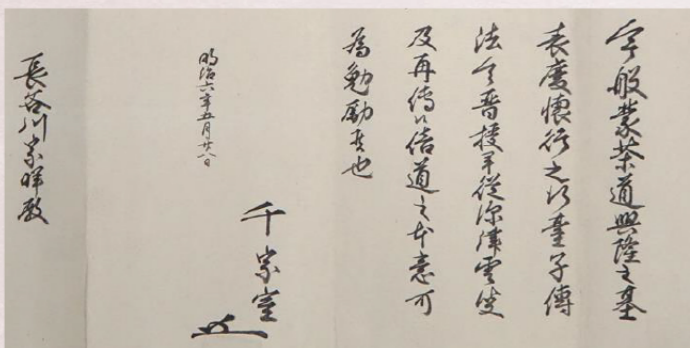 今般蒙茶道興隆之基
表度懐行之以臺子傳
法令普授畢従深津雲叟
及再傳以信道之本意可
為勉励者也
明治六年五月廿八日
千宗室
長谷川宗暉殿